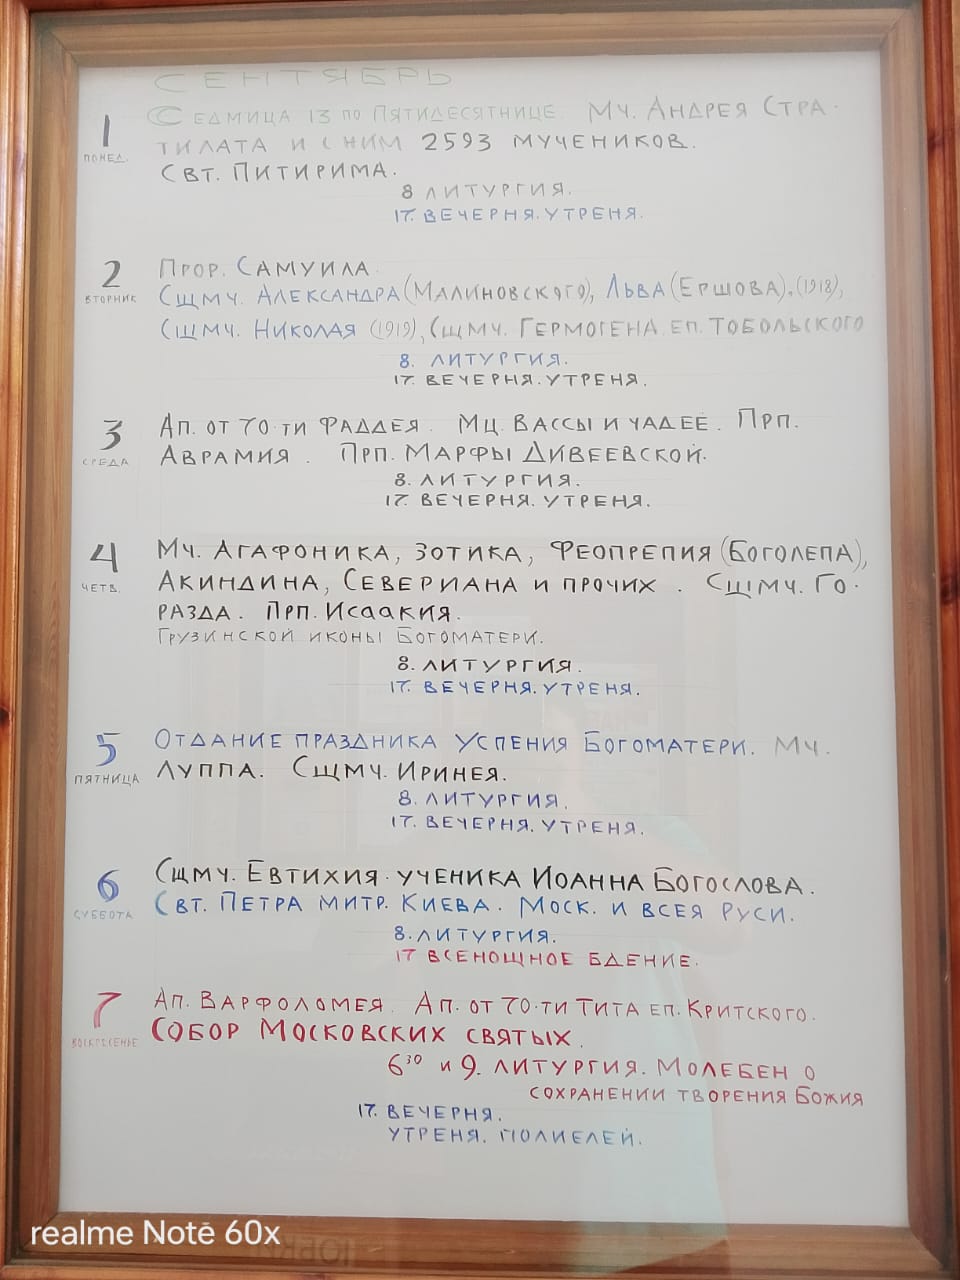 СЕНТЯБРЬ
1 СЕДМИЦА 13 ПО ПЯТИДЕСЯТНИЦЕ. МЧ. АНДРЕЯ СТРА-
ПОНЕД. ТИЛАТА И С НИМ 2593 МУЧЕНИКОВ.
СВТ. ПИТИРИМА.
8 ЛИТУРГИЯ.
17. ВЕЧЕРНЯ. УТРЕНЯ.
2 ПРОР. САМУИЛА.
ВТОРНИК СЩМЧ. АЛЕКСАНДРА (МАЛИНОВСКОГО), ЛЬВА (ЕРШОВА), (1918),
СЩМЧ. НИКОЛАЯ (1919), СЩМЧ. ГЕРМОГЕНА ЕП. ТОБОЛЬСКОГО
8. ЛИТУРГИЯ.
17. ВЕЧЕРНЯ. УТРЕНЯ.
3 АП. ОТ 70-ТИ ФАДДЕЯ. МЦ. ВАССЫ И ЧАД ЕЁ. ПРП.
СРЕДА АВРАМИЯ. ПРП. МАРФЫ ДИВЕЕВСКОЙ.
8. ЛИТУРГИЯ.
17. ВЕЧЕРНЯ. УТРЕНЯ.
4 МЧ. АГАФОНИКА, ЗОТИКА, ФЕОПРЕПИЯ (БОГОЛЕПА),
ЧЕТВ. АКИНДИНА, СЕВЕРИАНА И ПРОЧИХ. СЩМЧ. ГО-
РАЗДА. ПРП. ИСААКИЯ.
ГРУЗИНСКОЙ ИКОНЫ БОГОМАТЕРИ.
8. ЛИТУРГИЯ.
17. ВЕЧЕРНЯ. УТРЕНЯ.
5 ОТДАНИЕ ПРАЗДНИКА УСПЕНИЯ БОГОМАТЕРИ. МЧ.
ПЯТНИЦА ЛУППА. СЩМЧ. ИРИНЕЯ.
8. ЛИТУРГИЯ.
17. ВЕЧЕРНЯ. УТРЕНЯ.
6 СЩМЧ. ЕВТИХИЯ УЧЕНИКА ИОАННА БОГОСЛОВА.
СУББОТА СВТ. ПЕТРА МИТР. КИЕВА. МОСК. И ВСЕЯ РУСИ.
8. ЛИТУРГИЯ.
17 ВСЕНОЩНОЕ БДЕНИЕ.
7 АП. ВАРФОЛОМЕЯ. АП. ОТ 70-ТИ ТИТА ЕП. КРИТСКОГО.
ВОСКРЕСЕНЬЕ СОБОР МОСКОВСКИХ СВЯТЫХ.
6³⁰ И 9. ЛИТУРГИЯ. МОЛЕБЕН О
СОХРАНЕНИИ ТВОРЕНИЯ БОЖИЯ
17. ВЕЧЕРНЯ.
УТРЕНЯ. ПОЛИЕЛЕЙ.
realme Note 60x